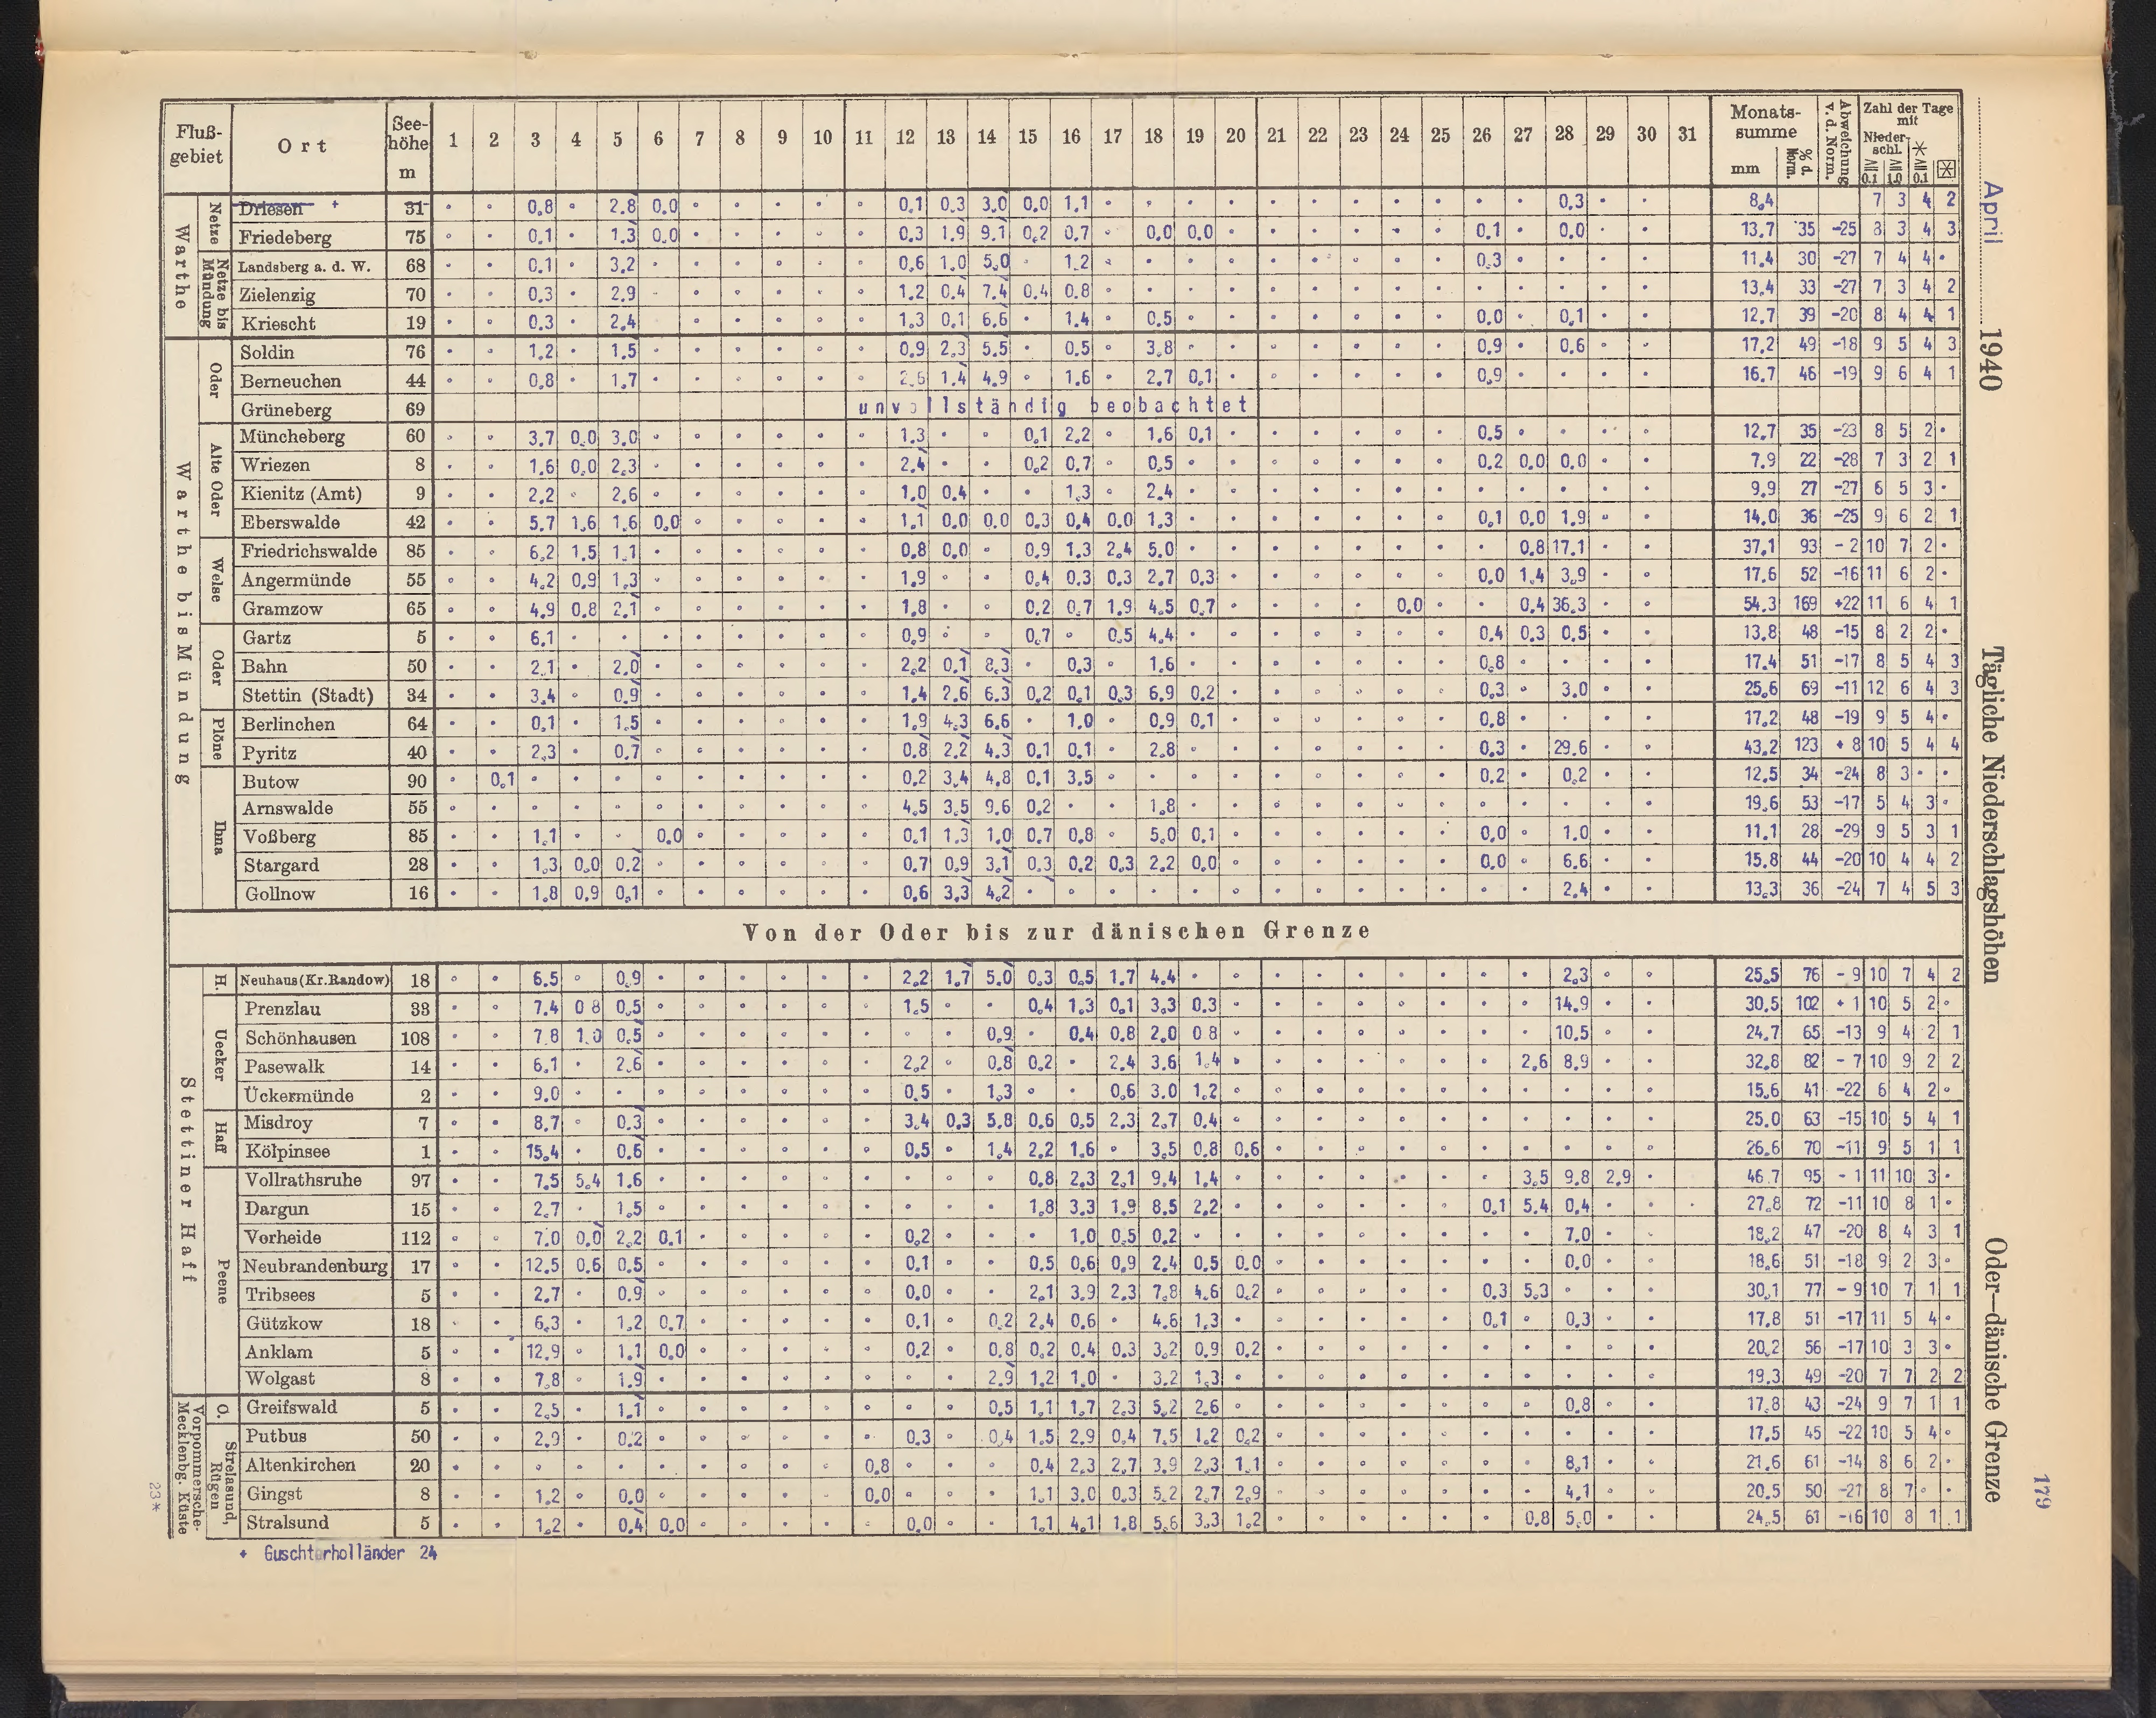 April 1940 Tägliche Niederschlagshöhen Oder—dänische Grenze 179
Fluß-gebiet Ort See-höhe m 1 2 3 4 5 6 7 8 9 10 11 12 13 14 15 16 17 18 19 20 21 22 23 24 25 26 27 28 29 30 31 Monats-summe mm % d. Norm. Abweichung v. d. Norm. Zahl der Tage mit Nieder-schl. ≧0.1 ≧1.0 ✳≧0.1
Warthe
Netze
Driesen + 31 • • 0,8 • 2,8 0,0 • • • • • 0,1 0,3 3,0 0,0 1,1 • • • • • • • • • • • 0,3 • • 8,4 7 3 4 2
Friedeberg 75 • • 0,1 • 1,3 0,0 • • • • • 0,3 1,9 9,1 0,2 0,7 • 0,0 0,0 • • • • • • 0,1 • 0,0 • • 13,7 35 -25 8 3 4 3
Netze bis Mündung
Landsberg a. d. W. 68 • • 0,1 • 3,2 • • • • • • 0,6 1,0 5,0 • 1,2 • • • • • • • • • 0,3 • • • • 11,4 30 -27 7 4 4 •
Zielenzig 70 • • 0,3 • 2,9 • • • • • • 1,2 0,4 7,4 0,4 0,8 • • • • • • • • • • • • • • 13,4 33 -27 7 3 4 2
Kriescht 19 • • 0,3 • 2,4 • • • • • 1,3 0,1 6,6 • 1,4 • 0,5 • • • • • • • 0,0 • 0,1 • • 12,7 39 -20 8 4 4 1
Warthe bis Mündung
Oder
Soldin 76 • • 1,2 • 1,5 • • • • • • 0,9 2,3 5,5 • 0,5 • 3,8 • • • • • • • 0,9 • 0,6 • • 17,2 49 -18 9 5 4 3
Berneuchen 44 • • 0,8 • 1,7 • • • • • • 2,6 1,4 4,9 • 1,6 • 2,7 0,1 • • • • • • 0,9 • • • • 16,7 46 -19 9 6 4 1
Grüneberg 69 unvollständig beobachtet
Alte Oder
Müncheberg 60 • • 3,7 0,0 3,0 • • • • • • 1,3 • • 0,1 2,2 • 1,6 0,1 • • • • • • 0,5 • • • • 12,7 35 -23 8 5 2 •
Wriezen 8 • • 1,6 0,0 2,3 • • • • • • 2,4 • • 0,2 0,7 • 0,5 • • • • • • • 0,2 0,0 0,0 • • 7,9 22 -28 7 3 2 1
Kienitz (Amt) 9 • • 2,2 • 2,6 • • • • • • 1,0 0,4 • • 1,3 • 2,4 • • • • • • • • • • • • 9,9 27 -27 6 5 3 •
Eberswalde 42 • • 5,7 1,6 1,6 0,0 • • • • • 1,1 0,0 0,0 0,3 0,4 0,0 1,3 • • • • • • • 0,1 0,0 1,9 • • 14,0 36 -25 9 6 2 1
Welse
Friedrichswalde 85 • • 6,2 1,5 1,1 • • • • • • 0,8 0,0 • 0,9 1,3 2,4 5,0 • • • • • • • • 0,8 17,1 • • 37,1 93 - 2 10 7 2 •
Angermünde 55 • • 4,2 0,9 1,3 • • • • • • 1,9 • • 0,4 0,3 0,3 2,7 0,3 • • • • • • 0,0 1,4 3,9 • • 17,6 52 -16 11 6 2 •
Gramzow 65 • • 4,9 0,8 2,1 • • • • • • 1,8 • • 0,2 0,7 1,9 4,5 0,7 • • • • 0,0 • • 0,4 36,3 • • 54,3 169 +22 11 6 4 1
Oder
Gartz 5 • • 6,1 • • • • • • • • 0,9 • • 0,7 • 0,5 4,4 • • • • • • • 0,4 0,3 0,5 • • 13,8 48 -15 8 2 2 •
Bahn 50 • • 2,1 • 2,0 • • • • • • 2,2 0,1 8,3 • 0,3 • 1,6 • • • • • • • 0,8 • • • • 17,4 51 -17 8 5 4 3
Stettin (Stadt) 34 • • 3,4 • 0,9 • • • • • • 1,4 2,6 6,3 0,2 0,1 0,3 6,9 0,2 • • • • • • 0,3 • 3,0 • • 25,6 69 -11 12 6 4 3
Plöne
Berlinchen 64 • • 0,1 • 1,5 • • • • • • 1,9 4,3 6,6 • 1,0 • 0,9 0,1 • • • • • • 0,8 • • • • 17,2 48 -19 9 5 4 •
Pyritz 40 • • 2,3 • 0,7 • • • • • • 0,8 2,2 4,3 0,1 0,1 • 2,8 • • • • • • • 0,3 • 29,6 • • 43,2 123 + 8 10 5 4 4
Ihna
Butow 90 • 0,1 • • • • • • • • • 0,2 3,4 4,8 0,1 3,5 • • • • • • • • • 0,2 • 0,2 • • 12,5 34 -24 8 3 • •
Arnswalde 55 • • • • • • • • • • • 4,5 3,5 9,6 0,2 • • 1,8 • • • • • • • • • • • • 19,6 53 -17 5 4 3 •
Voßberg 85 • • 1,1 • • 0,0 • • • • • 0,1 1,3 1,0 0,7 0,8 • 5,0 0,1 • • • • • • 0,0 • 1,0 • • 11,1 28 -29 9 5 3 1
Stargard 28 • • 1,3 0,0 0,2 • • • • • • 0,7 0,9 3,1 0,3 0,2 0,3 2,2 0,0 • • • • • • 0,0 • 6,6 • • 15,8 44 -20 10 4 4 2
Gollnow 16 • • 1,8 0,9 0,1 • • • • • • 0,6 3,3 4,2 • • • • • • • • • • • • • 2,4 • • 13,3 36 -24 7 4 5 3
Von der Oder bis zur dänischen Grenze
Stettiner Haff
H.
Neuhaus (Kr. Randow) 18 • • 6,5 • 0,9 • • • • • • 2,2 1,7 5,0 0,3 0,5 1,7 4,4 • • • • • • • • • 2,3 • • 25,5 76 - 9 10 7 4 2
Uecker
Prenzlau 33 • • 7,4 0 8 0,5 • • • • • • 1,5 • • 0,4 1,3 0,1 3,3 0,3 • • • • • • • • 14,9 • • 30,5 102 + 1 10 5 2 •
Schönhausen 108 • • 7,8 1,0 0,5 • • • • • • • • 0,9 • 0,4 0,8 2,0 0 8 • • • • • • • • 10,5 • • 24,7 65 -13 9 4 2 1
Pasewalk 14 • • 6,1 • 2,6 • • • • • • 2,2 • 0,8 0,2 • 2,4 3,6 1,4 • • • • • • • 2,6 8,9 • • 32,8 82 - 7 10 9 2 2
Ückermünde 2 • • 9,0 • • • • • • • • 0,5 • 1,3 • • 0,6 3,0 1,2 • • • • • • • • • • • 15,6 41 -22 6 4 2 •
Haff
Misdroy 7 • • 8,7 • 0,3 • • • • • • 3,4 0,3 5,8 0,6 0,5 2,3 2,7 0,4 • • • • • • • • • • • 25,0 63 -15 10 5 4 1
Kölpinsee 1 • • 15,4 • 0,6 • • • • • • 0,5 • 1,4 2,2 1,6 • 3,5 0,8 0,6 • • • • • • • • • • 26,6 70 -11 9 5 1 1
Peene
Vollrathsruhe 97 • • 7,5 5,4 1,6 • • • • • • • • • 0,8 2,3 2,1 9,4 1,4 • • • • • • • 3,5 9,8 2,9 • 46,7 95 - 1 11 10 3 •
Dargun 15 • • 2,7 • 1,5 • • • • • • • • • 1,8 3,3 1,9 8,5 2,2 • • • • • • 0,1 5,4 0,4 • • • 27,8 72 -11 10 8 1 •
Vorheide 112 • • 7,0 0,0 2,2 0,1 • • • • • 0,2 • • • 1,0 0,5 0,2 • • • • • • • • • 7,0 • • 18,2 47 -20 8 4 3 1
Neubrandenburg 17 • • 12,5 0,6 0,5 • • • • • • 0,1 • • 0,5 0,6 0,9 2,4 0,5 0,0 • • • • • • • 0,0 • • 18,6 51 -18 9 2 3 •
Tribsees 5 • • 2,7 • 0,9 • • • • • • 0,0 • • 2,1 3,9 2,3 7,8 4,6 0,2 • • • • • 0,3 5,3 • • • 30,1 77 - 9 10 7 1 1
Gützkow 18 • • 6,3 • 1,2 0,7 • • • • • 0,1 • 0,2 2,4 0,6 • 4,6 1,3 • • • • • • 0,1 • 0,3 • • 17,8 51 -17 11 5 4 •
Anklam 5 • • 12,9 • 1,1 0,0 • • • • • 0,2 • 0,8 0,2 0,4 0,3 3,2 0,9 0,2 • • • • • • • • • • 20,2 56 -17 10 3 3 •
Wolgast 8 • • 7,8 • 1,9 • • • • • • • • 2,9 1,2 1,0 • 3,2 1,3 • • • • • • • • • • • 19,3 49 -20 7 7 2 2
Vorpommersche-Mecklenbg. Küste
O.
Greifswald 5 • • 2,5 • 1,1 • • • • • • • • 0,5 1,1 1,7 2,3 5,2 2,6 • • • • • • • • 0,8 • • 17,8 43 -24 9 7 1 1
Strelasund, Rügen
Putbus 50 • • 2,9 • 0,2 • • • • • • 0,3 • 0,4 1,5 2,9 0,4 7,5 1,2 0,2 • • • • • • • • • • 17,5 45 -22 10 5 4 •
Altenkirchen 20 • • • • • • • • • • 0,8 • • • 0,4 2,3 2,7 3,9 2,3 1,1 • • • • • • • 8,1 • • 21,6 61 -14 8 6 2 •
Gingst 8 • • 1,2 • 0,0 • • • • • 0,0 • • • 1,1 3,0 0,3 5,2 2,7 2,9 • • • • • • • 4,1 • • 20,5 50 -21 8 7 • •
Stralsund 5 • • 1,2 • 0,4 0,0 • • • • • 0,0 • • 1,1 4,1 1,8 5,6 3,3 1,2 • • • • • • 0,8 5,0 • • 24,5 61 -16 10 8 1 1
+ Guschterholländer 24
23*